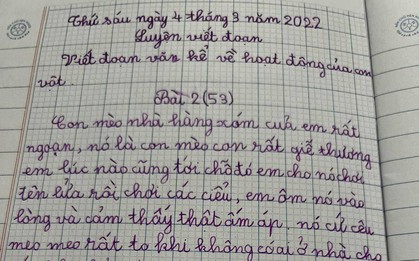 Thứ sáu ngày 4 tháng 3 năm 2022
Luyện viết đoan
Viết đoan văn kể về hoạt động của con
vật.
Bài 2 (53)
Con mèo nhà hàng xóm cưa em rất
ngoạn, nó là con mèo con rất giễ thương
em lúc nào cũng tới chỗ đó em cho nó chơi
tên lửa rồi chơi các kiểu, em ôm nó vào
lòng và cảm thấy thật ấm áp, nó cứ cêu
meo meo rất to khi không có ai ở nhà cho